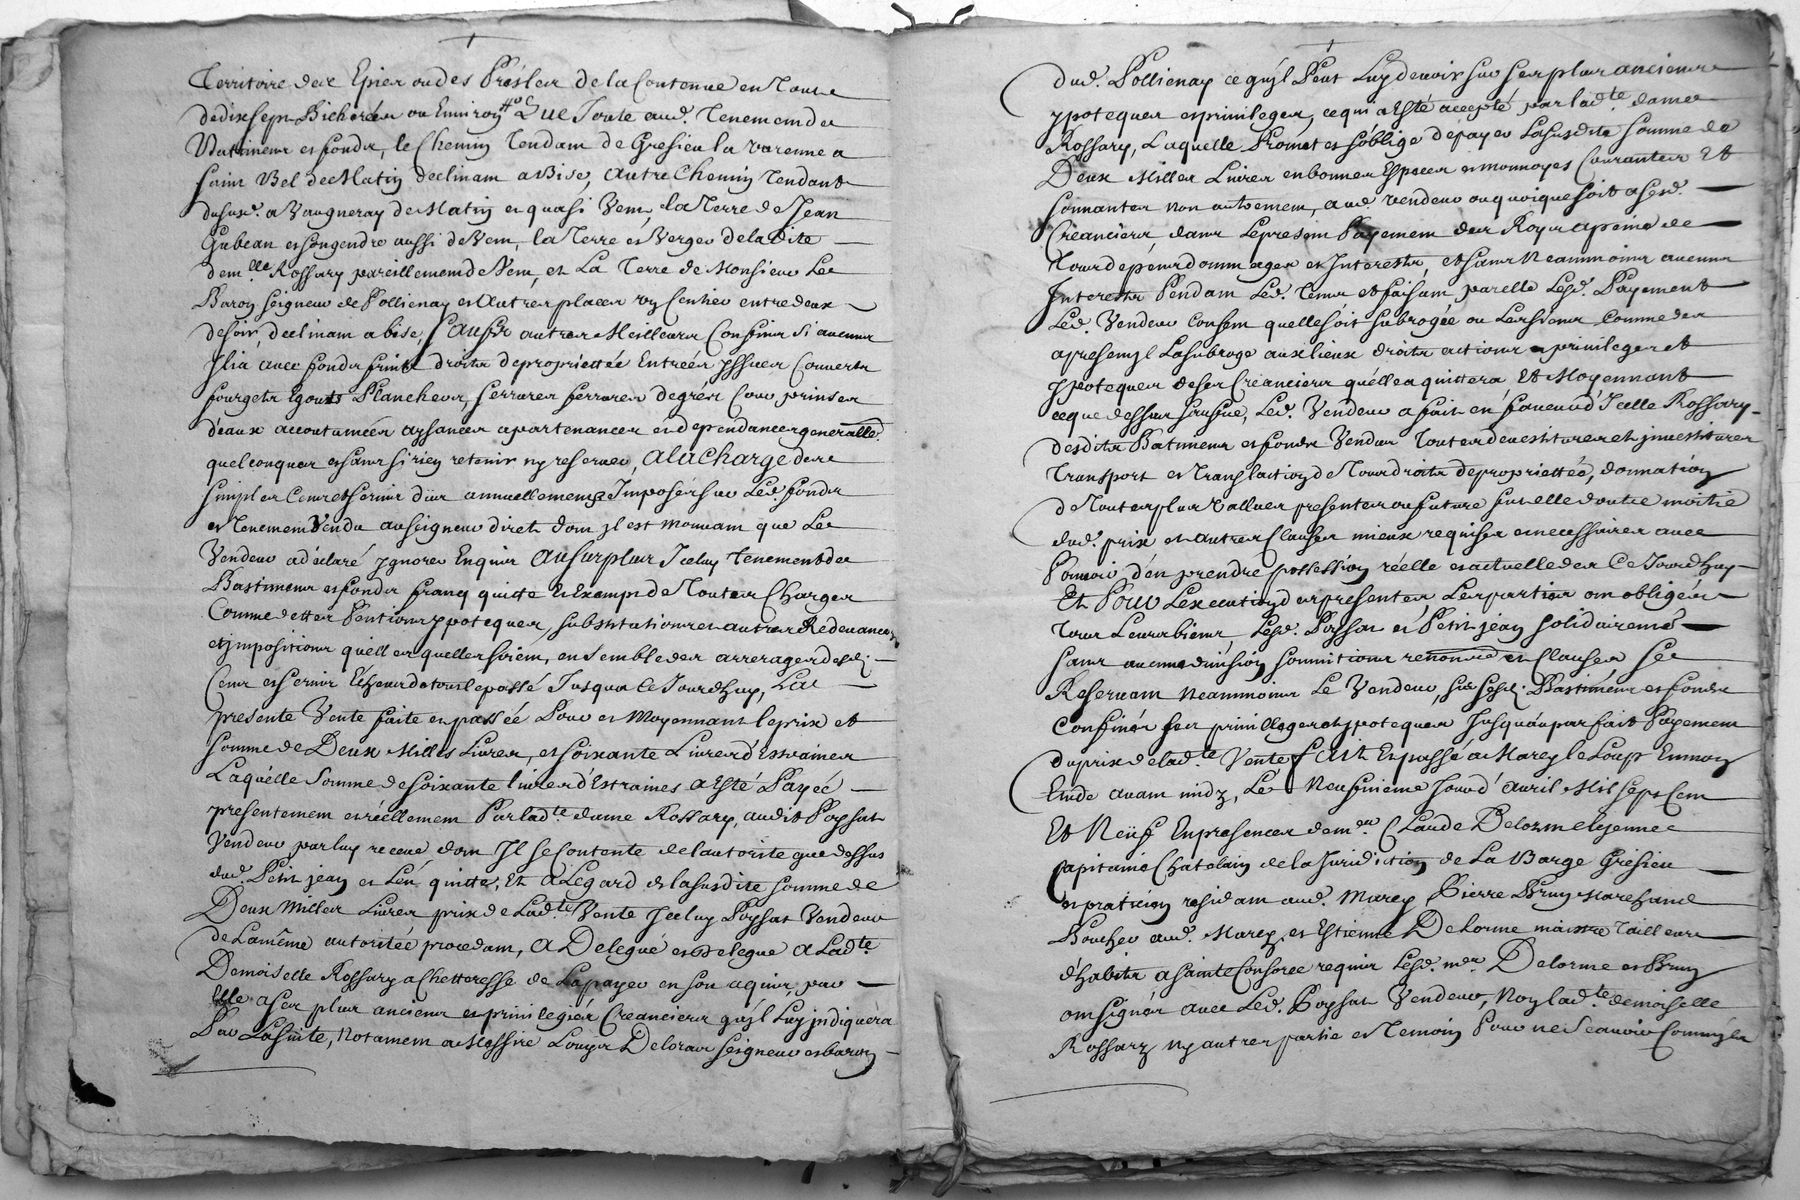 Territoire des Epies ou des Presles de la Contenue en Toute
de dix sept Bicherées ou Environ Que Joute aud. Tenement de
Batimens et fonds, le Chemin Tendam de Gresieu la varenne a
saint Bel de Matin declinam a Bise, Autre Chemin Tendant
dususd. a Vaugneray de Matin et quasi Vem, la Terre de Jean
Gubean et son gendre aussi de Vem, la Terre et Verger de la dite
demlle Rossary pareillemem de Vem, et La Terre de Monsieur Le
Baron Seigneur de Pollienay et Autres places un sentier entredeux
de soir, declinam a bise, Saufs autres Meilleurs Confins si aucuns
Il ia avec fonds fruits droits de proprietté Entrées Yssues Couverts
fourgets Egouts Planchers, serrures ferrures degrés Cour prinses
d'eaux accoutumées aysances apartenances et dependances generalle.
quelconques et sans si rien retenir ny reserver, A la Charge des
simples Cens et servis düs annuellement Imposés sur Led. fonds
et Tenemem Vendu au seigneur direct dom il est mouvam que Le
Vendeur a déclaré ygnorer Enquis Au surplus Iceluy tenement de
Bastimens et fonds franq quitte et Exempt de Toutes Charges
Comme dettes Pentions ypoteques, substitutions et autres Redevances
et impositions quelles quelles soiem, ensemble des arrerages desd.
Cens et servis Écheus de tout le passé Jusqua Ce Jourdhuy, La
presente Vente faite et passée Pour et Moyennant le prix et
somme de Deux Milles Livres, et soixante Livres d'Estraines
Laquelle Somme de soixante livres d'Estraines a Esté Payée
presentemem et réellemem Par ladte dame Rossary, audit Poysat
Vendeur par luy receue dom Il se Contente de l'autorite que dessus
dud. Petit jean et Len quitte, Et A Legard de la susdite somme de
Deux Milles Livres prix de Ladte Vente Iceluy Poysat Vendeur
de La même autoritée procedam, A Delegué et Delegue A Ladte
Demoiselle Rossary achetteresse de La payer en son aquit, par
Elle a ses plus anciens et privilegiés Creanciers qu'il Luy indiquera
Par La suite, Notamem a Messire Louys Delorau Seigneur et baron
dud. Pollienay ce qu'il Peut Luy devoir sur ses plus anciens
ypoteques et privileges, ce qui a Esté accepté par ladte dame
Rossary, Laquelle Promet et soblige de payer La susdite somme de
Deux Milles Livres en bonnes Especes et monnoyes Courantes Et
sonnantes non autremem, aud. vendeur ou quoique soit a sesd.
Creanciers, dans Le presem Payemem des Roys a peine de
Tous depens dommages et Interests, et sans Neammoins aucuns
Interests Pendam Led. Tems et faisam par elle Lesd. Payement
Led. Vendeur Consem quelle soit subrogée ou Les siens Comme des
a present il La subroge aux lieux droits actions privileges et
ypoteques de ses Creanciers quelle aquittera Et Moyennant
ce que dessus Led. Vendeur a fait en faveur d'Icelle Rossary
desdits Batimens et fonds Vendus Toutes devestitures et investitures
Transport et Translation de Tous droits de proprietté, donnation
de Toutes plus Vallues presentes ou future fut elle d'outre moitie
dud. prix et autres Clauses mieux requises et necessaires avec
Pouvoir d'en prendre possession réelle et actuelle des Ce Jourdhuy
Et Pour L'execution des presentes Les parties om obligées
Tous Leurs biens Lesd. Poysat et Petit jean solidairemt
sans aucune division soumitions renonciaon et Clauses Se
Reservam Neammoins Le Vendeur, sur Lesd. Bastimens et fonds
Confinés ses privileges et ypoteques Jusqu'au parfait Payemem
du prix de lad.te Vente Fait et passé a Marcy le Loup En mon
Etude avam midy, Le Neufvieme Jour d'Avril Mil sept Cem
Et Neüf En presences de mer Claude Delorme Lyennee
Capitaine Chatelain de la Juridiction de La Barge Gresieu
et praticien residam aud. Marcy Pierre Brun Marchand
Boucher aud. Marcy, et Estienne Delorme maistre Tailleur
d'habits a sainte Consorce requis Lesd. mer Delorme et Brun
om signés avec Led. Poysat Vendeur, Non ladte demoiselle
Rossary ny autres partie et Temoin Pour ne Scavoir Comme ils